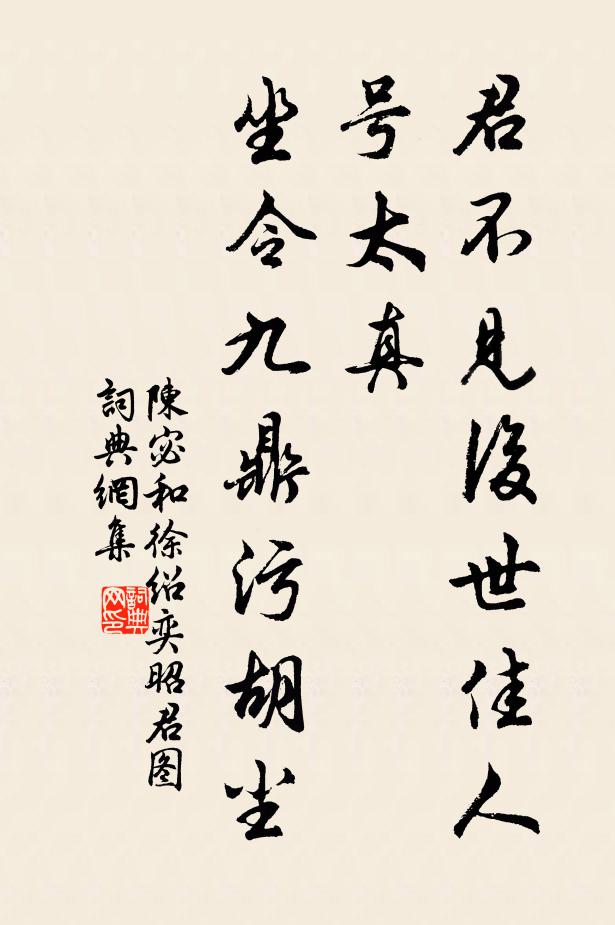 君不见後世佳人
号太真
坐令九鼎污胡尘
陳宓和徐绍奕昭君图
詞典網集
詞典网印